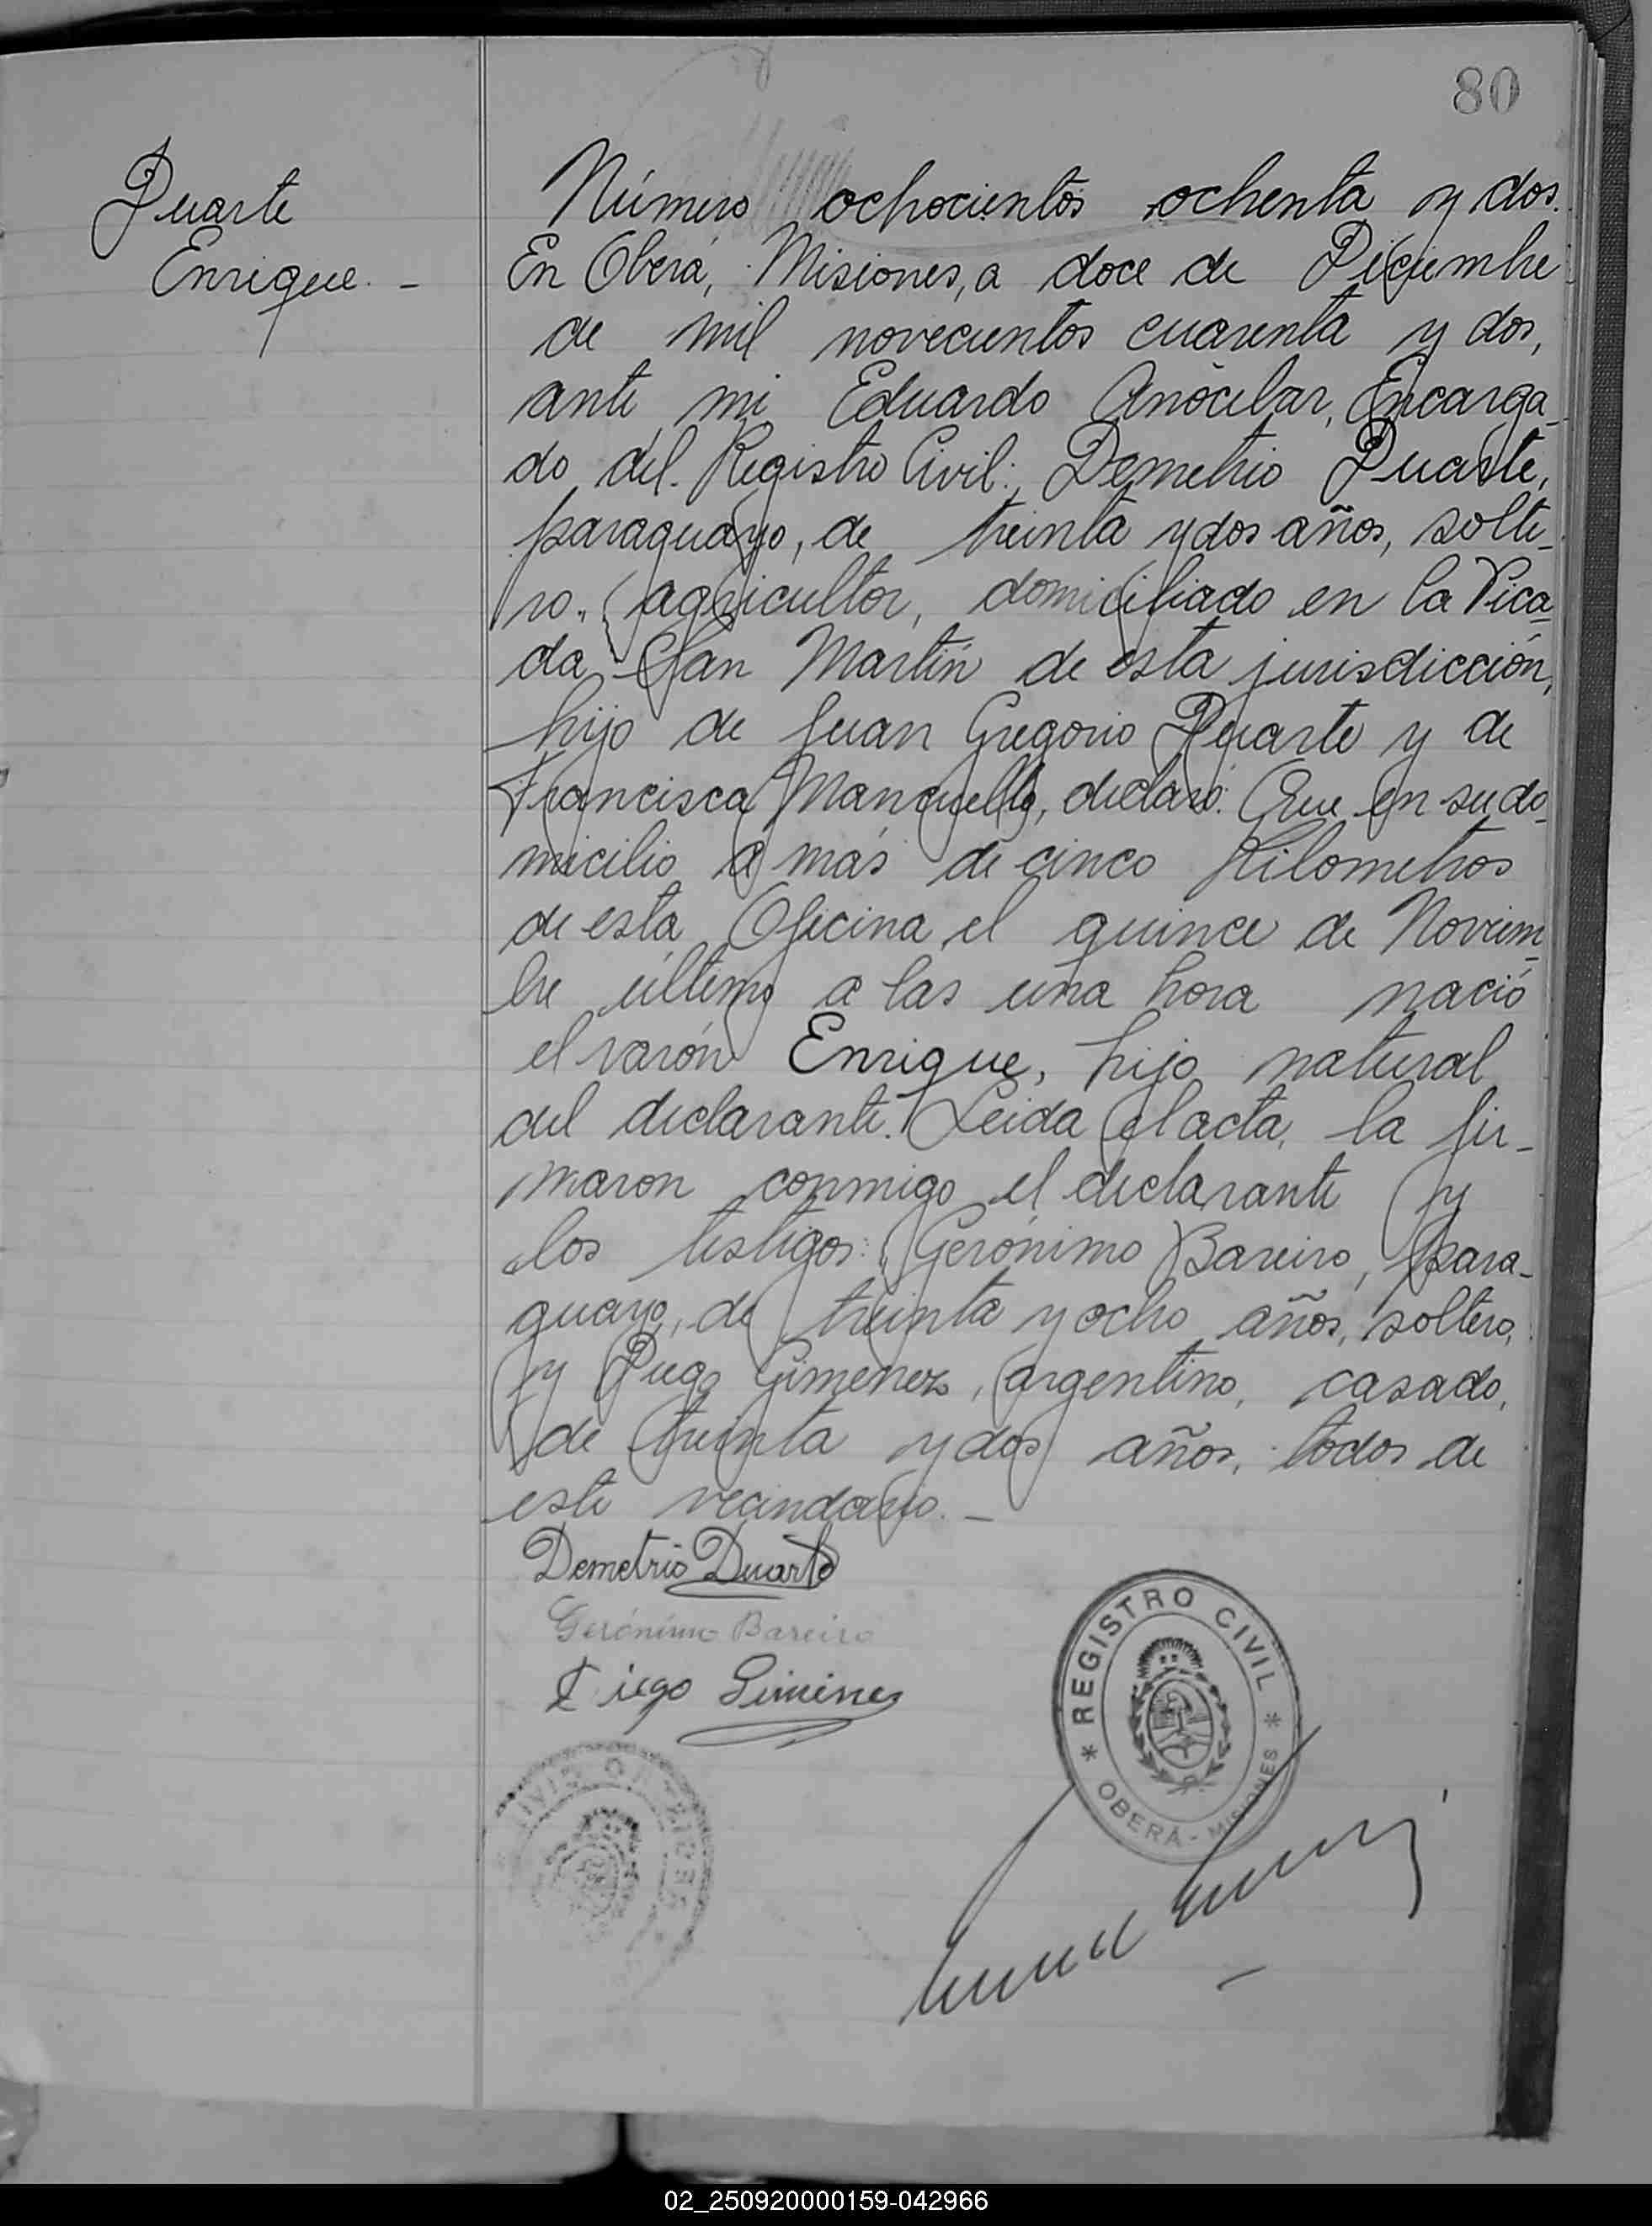 80
Duarte
Enrique. -
Número ochocientos ochenta y dos.
En Oberá, Misiones, a doce de Diciembre
de mil novecientos cuarenta y dos,
ante mi Eduardo Anocibar, Encarga-
do del Registro Civil: Demetrio Duarte,
paraguayo, de treinta y dos años, solte-
ro, agricultor, domiciliado en la Pica-
da San Martín de esta jurisdicción,
hijo de Juan Gregorio Duarte y de
Francisca Mancuello, declaró: Que en su do-
micilio a más de cinco kilometros
de esta Oficina el quince de Noviem-
bre último a las una hora nació
el varón Enrique, hijo natural
del declarante. Leida el acta, la fir-
maron conmigo el declarante y
los testigos: Gerónimo Bareiro, para-
guayo, de treinta y ocho años, soltero,
y Diego Gimenez, argentino, casado,
de treinta y dos años, todos de
este vecindario. -
Demetrio Duarte
Gerónimo Bareiro
Diego Gimenez
* REGISTRO CIVIL *
OBERÁ - MISIONES
02_250920000159-042966